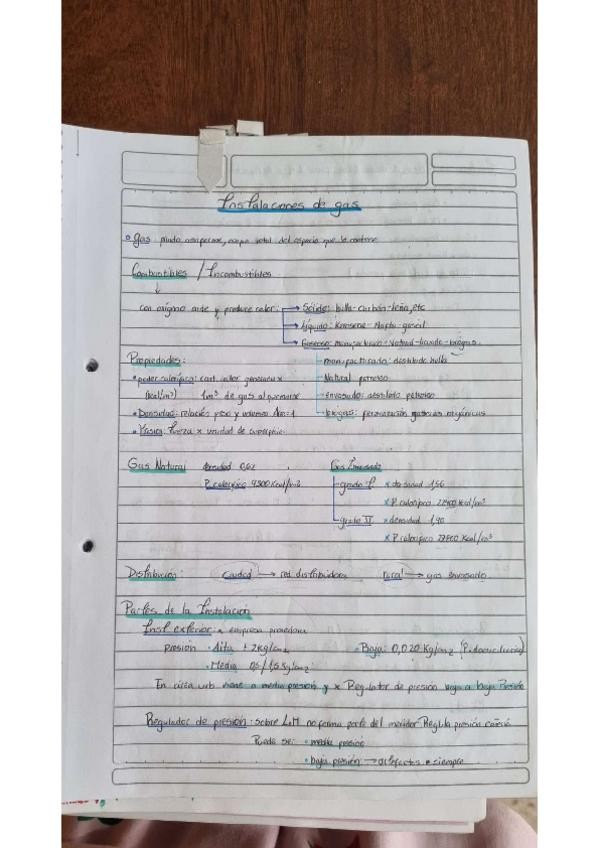 Instalaciones de gas
Gas: fluido
Combustibles / Incombustibles
con oxigeno arde y produce calor: Sólido: hulla-carbón-leña, etc
Líquido: Kerosene-Nafta-gasoil
Gaseoso: manufacturado-natural-
Propiedades: manufacturado: destilado hulla
poder calorífico: cant. calor generada x Natural petroleo
(kcal/m³) 1m³ de gas al quemarse envasado: destilado petroleo
Densidad: relación peso y volumen Aire=1 biogas: fermentación materias orgánicas
Presión: fuerza x unidad de superficie.
Gas Natural densidad 0,62 Gas Envasado
P. calorífico 9300 Kcal/m³ grado I x densidad 1,56
x P. calorífico 22400 Kcal/m³
grado II x densidad 1,90
x P. calorífico 27800 Kcal/m³
Distribución: ciudad → red distribuidora rural → gas envasado
Partes de la Instalación
Inst exterior: a empresa proveedora
presión Alta + 2Kg/cm2 Baja: 0,020 Kg/cm2 (P. domiciliaria)
Media 0,5/1,5 Kg/cm2
En area urb viene a media presión y x Regulador de presión baja a baja Presión
Regulador de presión: sobre L.M no forma parte del medidor Regula presión cañería
Puede ser media presión
baja presión → artefactos siempre